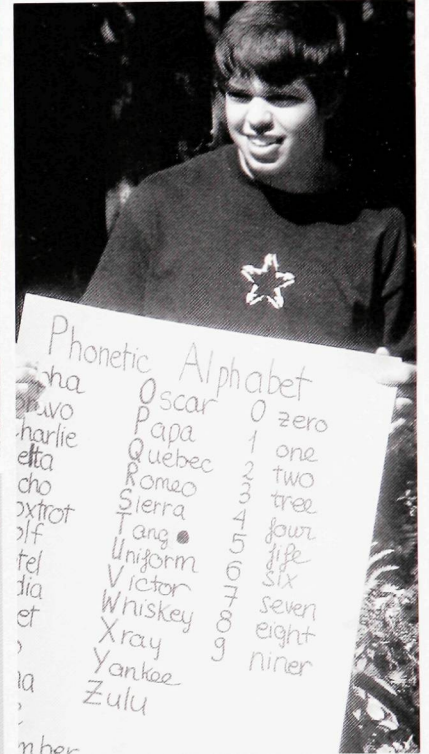 Phonetic Alphabet
pha
ravo
harlie
elta
cho
oxtrot
olf
tel
dia
et
mber
Oscar
Papa
Quebec
Romeo
Sierra
Tang
Uniform
Victor
Whiskey
Xray
Yankee
Zulu
0 zero
1 one
2 two
3 tree
4 four
5 fife
6 six
7 seven
8 eight
9 niner